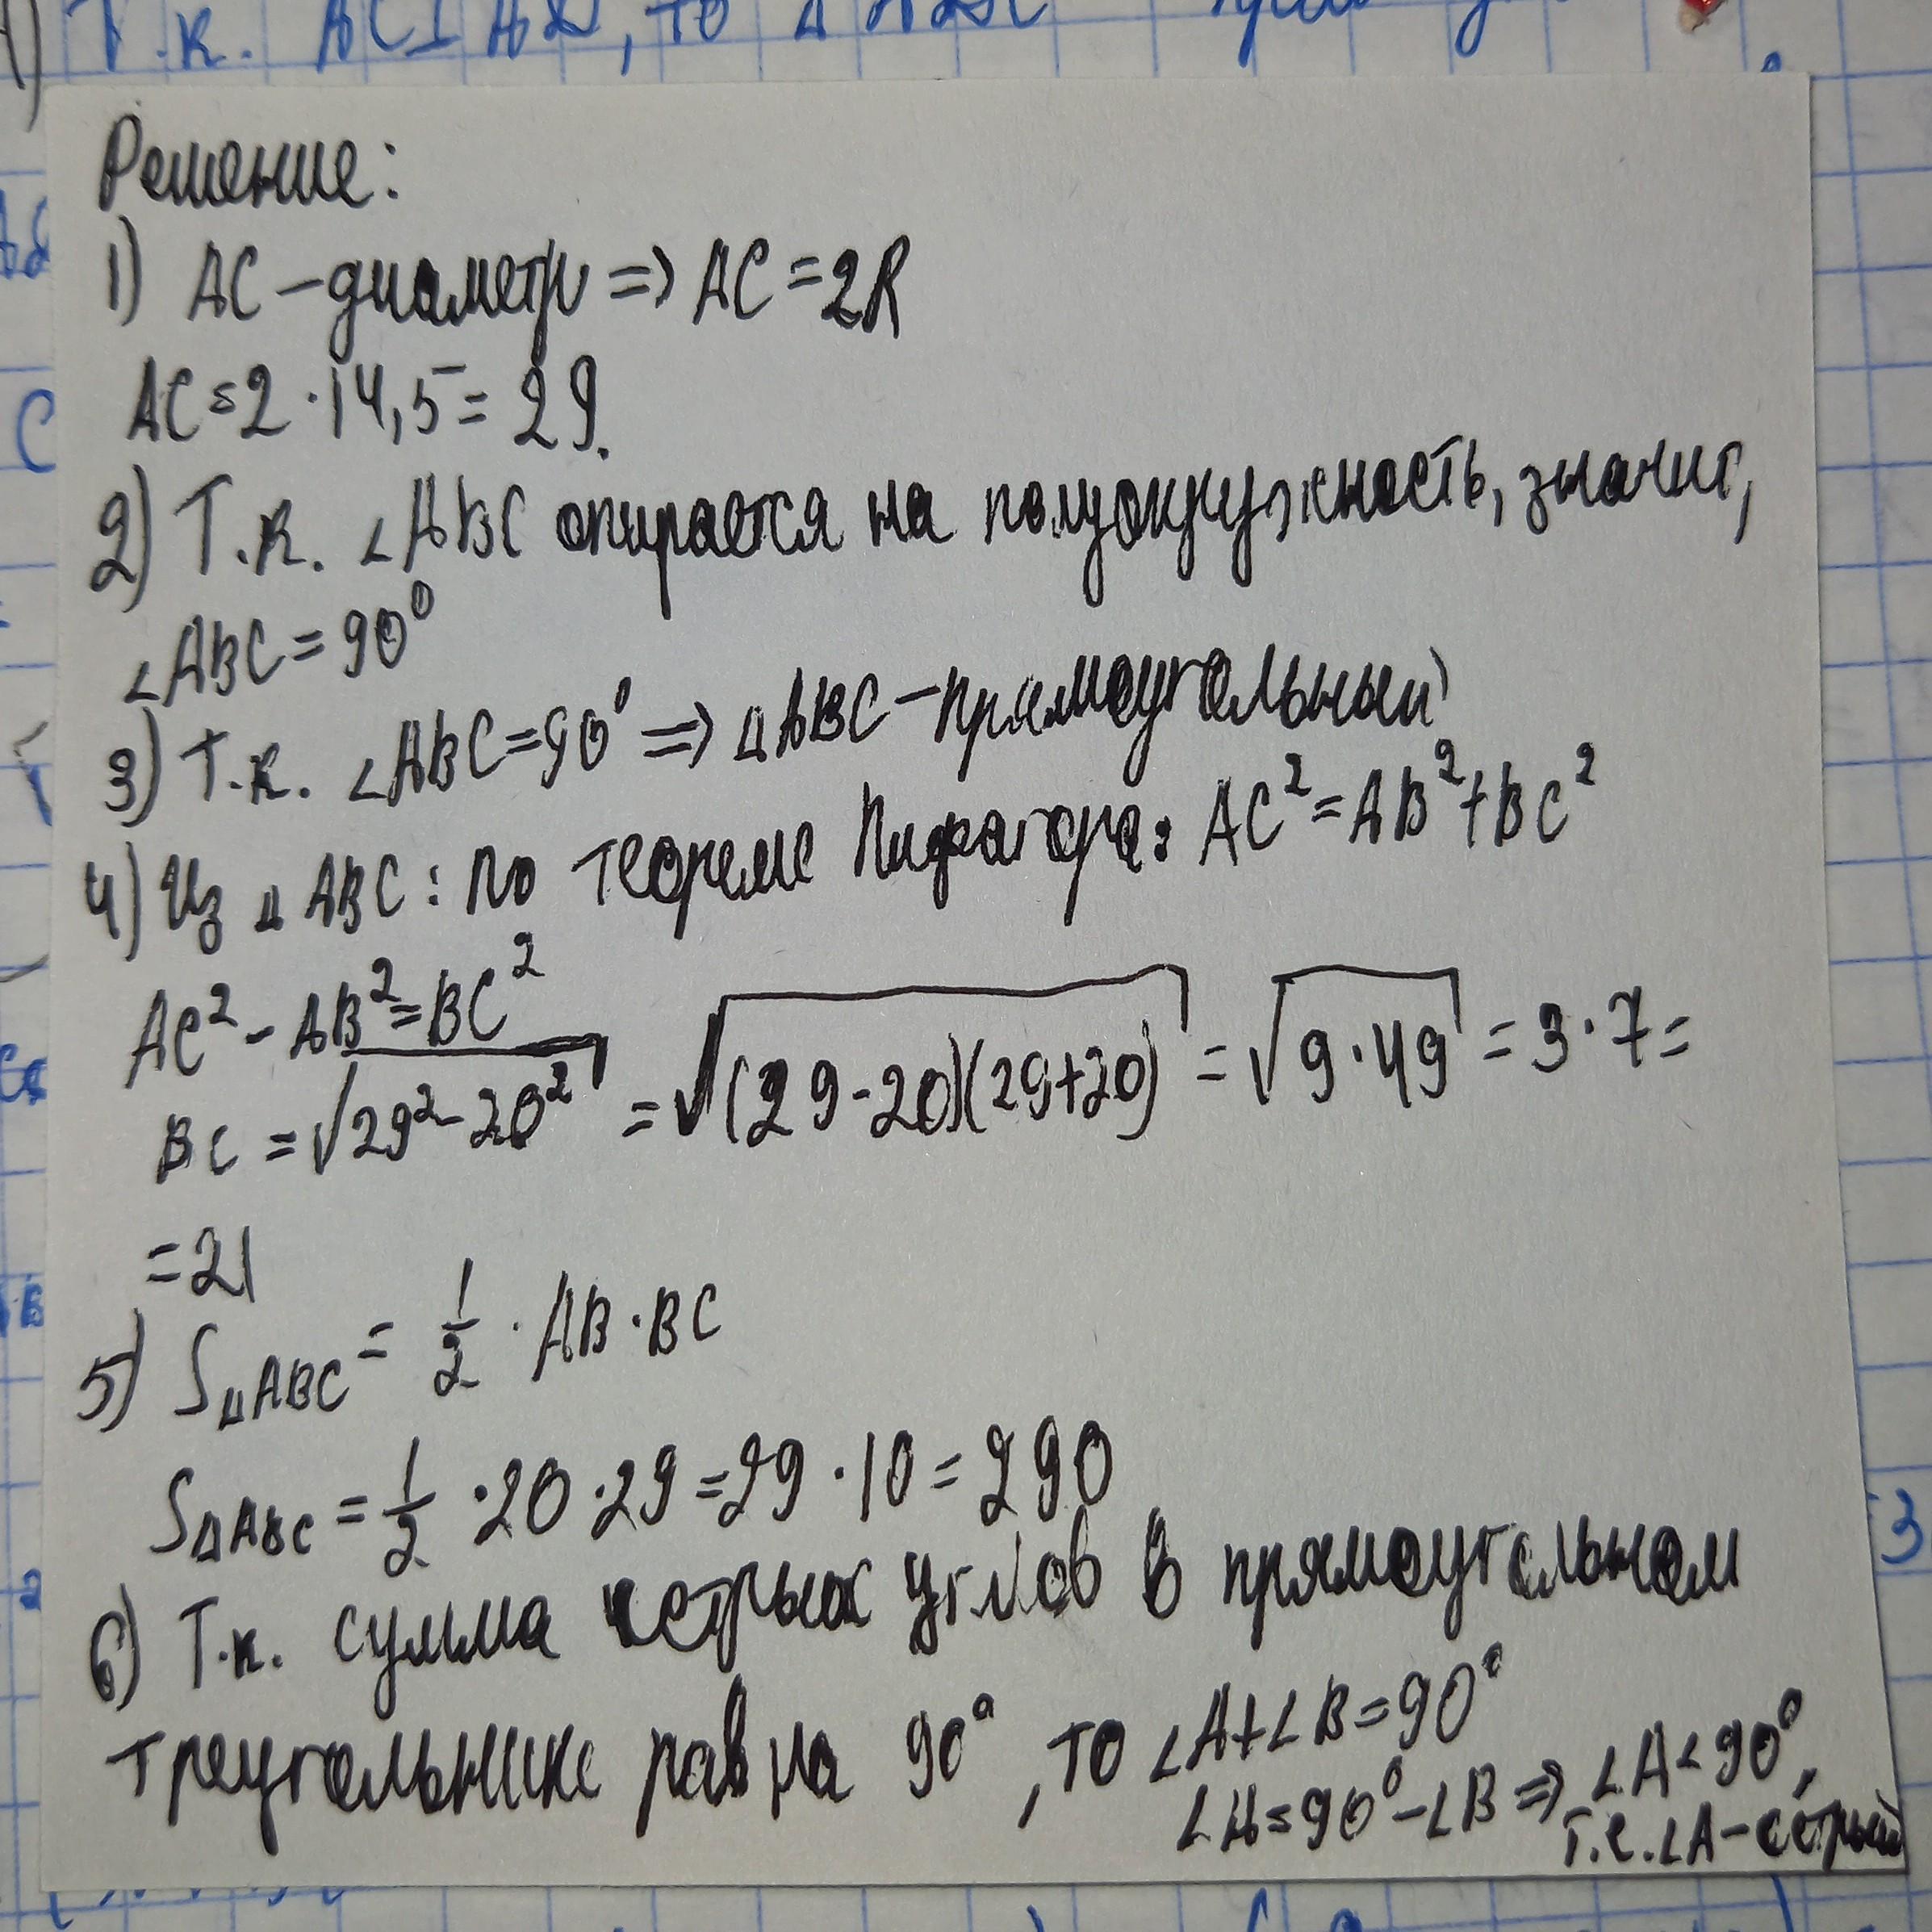 Т.к. AC⊥AB, то Δ
Решение:
1) AC – диаметр => AC = 2R
AC = 2 · 14,5 = 29.
2) Т.к. ∠ABC опирается на полуокружность, значит,
∠ABC = 90°
3) Т.к. ∠ABC = 90° => ΔABC – прямоугольный
4) Из ΔABC: по теореме Пифагора: AC² = AB² + BC²
AC² - AB² = BC²
BC = √(29² - 20²) = √((29-20)(29+20)) = √(9·49) = 3·7 =
= 21
5) S_ΔABC = 1/2 · AB · BC
S_ΔABC = 1/2 · 20 · 29 = 29 · 10 = 290
6) Т.к. сумма острых углов в прямоугольном
треугольнике равна 90°, то ∠A + ∠B = 90°
∠A = 90° - ∠B => ∠A < 90°,
т.е. ∠A – острый
C
3